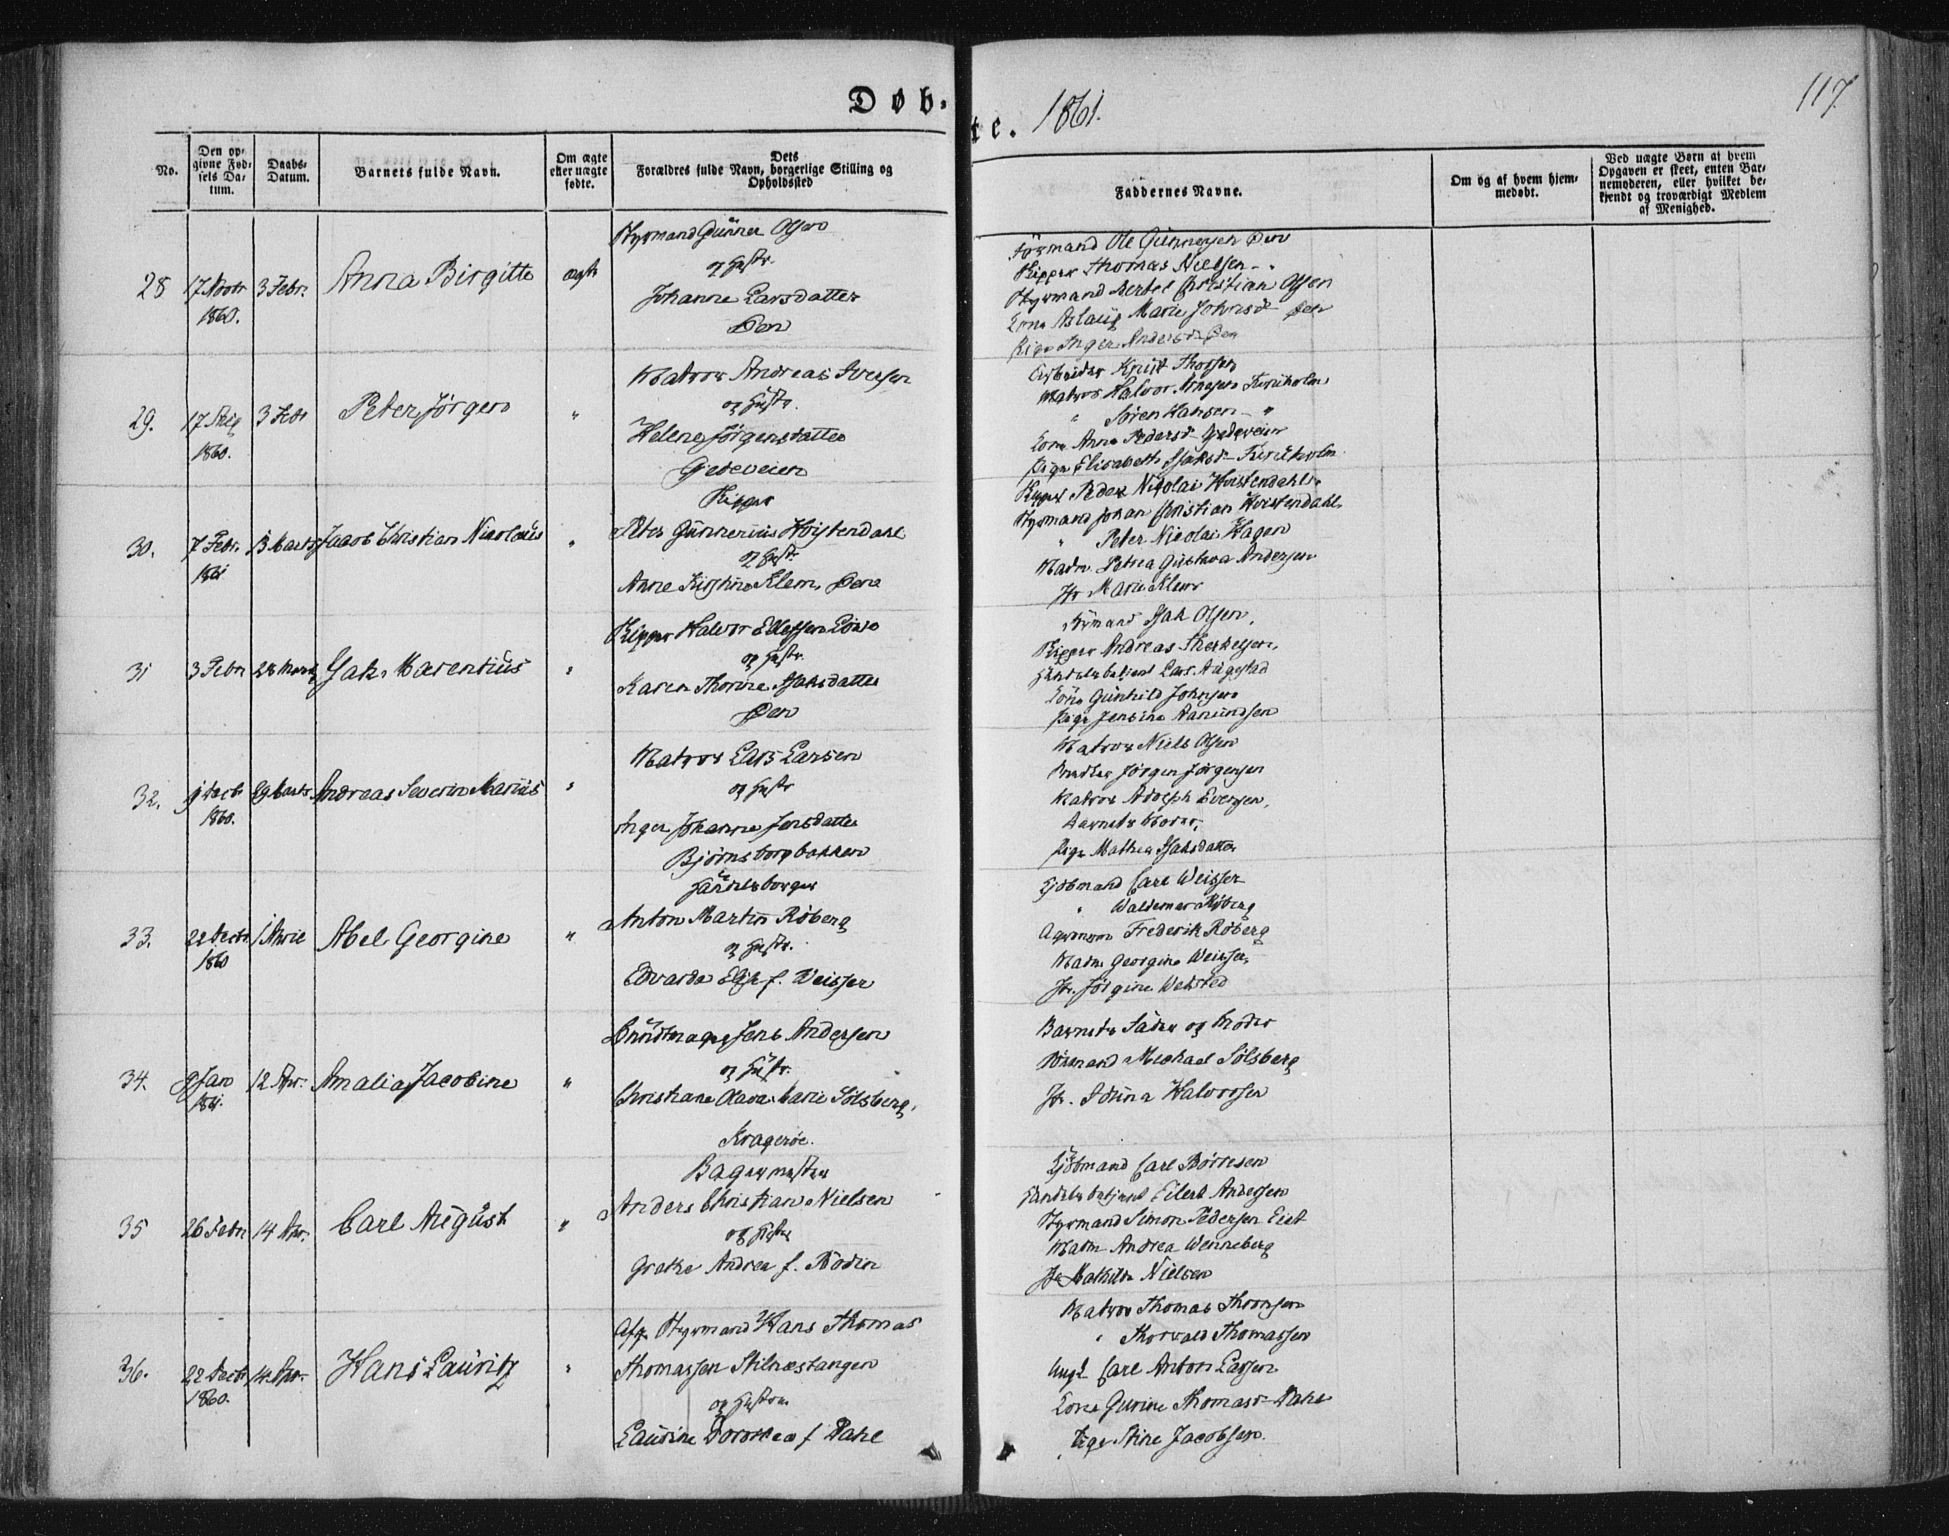 Døb-
te. 1861.
117.
No.
Den op-
givne Fød-
sels Da-
tum.
Daabs-
Datum.
Barnets fulde Navn.
Om ægte
eller uægte
fødte.
Dets
Forældres fulde Navn, borgerlige Stilling og
Opholdssted
Faddernes Navne.
Om og af hvem hjem-
medøbt.
Ved uægte Børn af hvem
Opgaven er skeet, enten Bar-
nemoderen, eller hvilket be-
kjendt og troværdigt Medlem
af Menighed.
28 17 Novbr 1860. 3 Febr. Anna Birgitte ægte
Styrmand Gunner Olsen
og Hustr.
Johanne Larsdatter
Øen
Formand Ole Gunnersen Øen
Skipper Thomas Nielsen "
Styrmand Bertel Christian Olsen
Kone Aslaug Marie Johnsd Øen
Pige Inger Andersd Øen
29. 17 1860. 3 Feb Peter Jørgen "
Matros Andreas Iversen
og Hustr.
Helene Jørgensdatter
Gjedeveien
Arbeider Knut Thorsen
Matros Halvor Arnesen Furuholm
" Søren Hansen "
Kone Anne Pedersd Gjedeveien
Pige Elisabeth Isaksd Furuholm
30. 7 Febr. 1861 Marts Jacob Christian Nicolaus "
Skipper
Peter Gunnerius Hvistendahl
og Hustr.
Anne Kirstine Klem, Øen
Skipper Peder Nicolai Hvistendahl
Styrmand Johan Christian Hvistendahl
" Peter Nicolai Hagen
Madm Petrea Gustava Andersen
Jfr Marie Klem
31 3 Febr 28 Marts Isak Marentius "
Skipper Halvor Ellefsen
og Hustr.
Karen Thorine Isaksdatter
Øen
Formand Isak Olsen,
Skipper Andreas Therkelsen,
Handelsbetjent Lars Augestad
Kone Gunhild Johnsen
Pige Jensine Aamundsen
32. 9 Decb 1860. 29 Marts Andreas Severin Marius "
Matros Lars Larsen
og Hustr
Inger Johanne Jensdatter
Bjørnsborgbakken
Matros Niels Olsen
Jørgen Jørgensen
Matros Adolph Evensen,
Barnets Moder,
Pige Mathea Isaksdatter
33. 22 Decbr 1860 1 April Abel Georgine "
Handelsborger
Anton Martin Röberg
og Hustr.
Edvarda Elise f. Weisser
Kjøbmand Carl Weisser
" Waldemar Röberg
Frederik Röberg
Madm Georgine Weisser
Jfr. Jørgine Websted
34. 9 Jan 1861. 12 Apr. Amalia Jacobine "
Buntmager Jens Andersen
og Hustr.
Christiane Olava Marie Sölsberg,
Kragerøe.
Barnets Fader og Moder
Michael Sölsberg
Jfr. Idunna Halvorsen
35 26 Febr 14 Apr. Carl August "
Bagermester
Anders Christian Nielsen
og Hustr
Grethe Andrea f. Bödin
Kjøbmand Carl Börresen
Handelsbetjent Eilert Andersen
Styrmand Simon Pedersen Eiet
Madm Andrea Wenneberg
Jfr Mathilde Nielsen
36. 22 Decbr 1860. 14 Apr. Hans Lauritz "
Afg. Styrmand Hans Thomas
Thomassen Stilnestangen
og Hustru
Laurine Dorothea f Dahl
Matros Thomas Thomsen
" Thorvald Thomassen
Ungk Carl Anton Larsen
Kone Gurine Thomasd Dahl
Pige Stine Jacobsen.